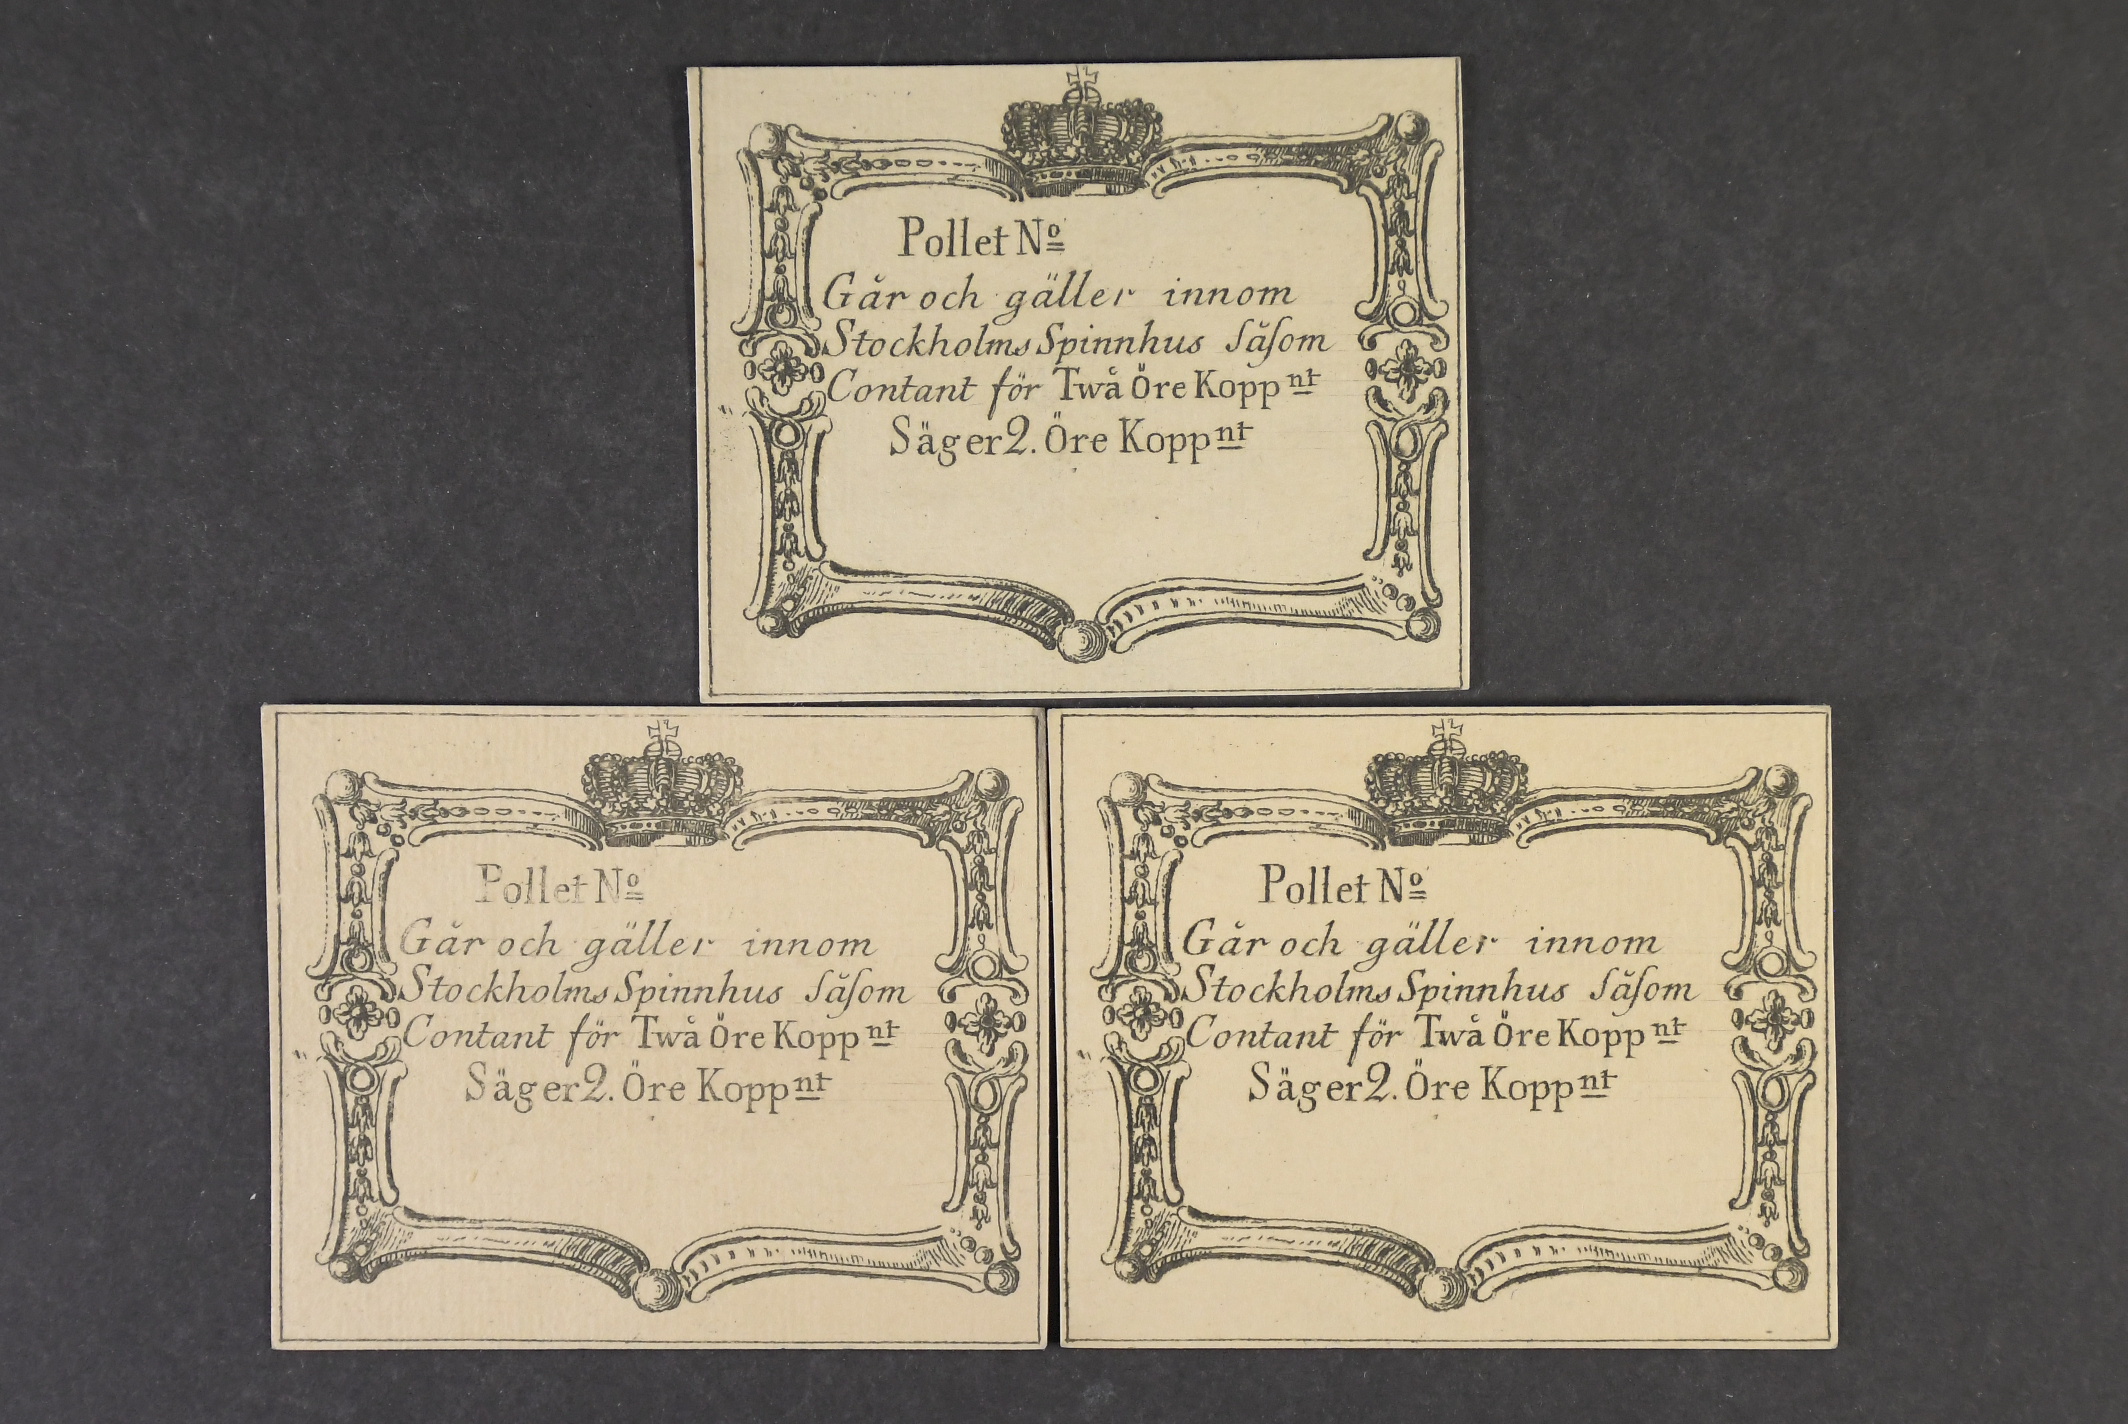 Pollet Nº
Går och gäller innom
Stockholms Spinnhus ſåſom
Contant för Twå Öre Kopp nt
Säger 2. Öre Kopp nt
Pollet Nº
Går och gäller innom
Stockholms Spinnhus ſåſom
Contant för Twå Öre Kopp nt
Säger 2. Öre Kopp nt
Pollet Nº
Går och gäller innom
Stockholms Spinnhus ſåſom
Contant för Twå Öre Kopp nt
Säger 2. Öre Kopp nt